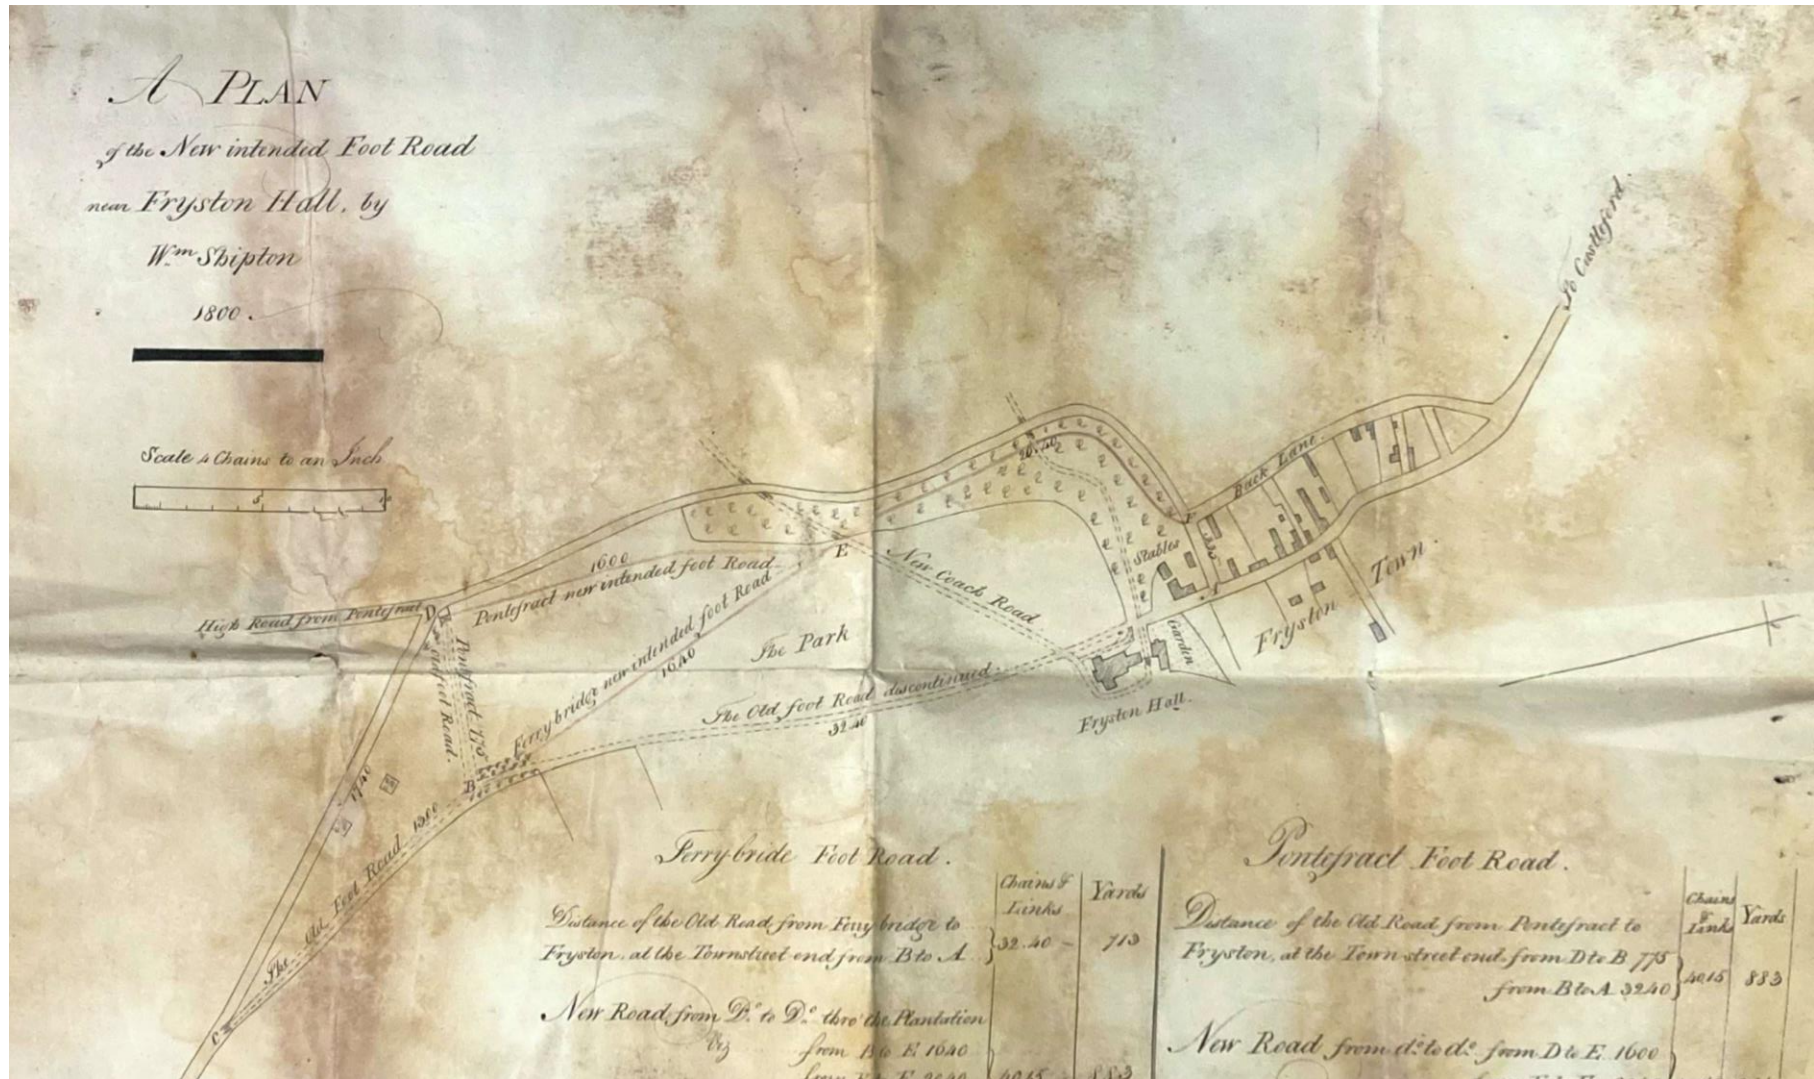 A PLAN
of the New intended Foot Road
near Fryston Hall, by
Wm Shipton
1800.
Scale 4 Chains to an Inch
5
10
To Castleford.
Back Lane.
20.40
F
Stables
A
Fryston Town.
Garden
Fryston Hall.
New Coach Road
E
1600
Pontefract new intended foot Road
High Road from Pontefract
D
Ferrybridge new intended foot Road
1640
The Park
The Old foot Road discontinued.
3240
Pontefract 775
old foot Road.
B
1740
The Old Foot Road 1300
C
Ferrybride Foot Road.
Chains & Links
Yards
Distance of the Old Road from Ferrybridge to
Fryston, at the Townstreet end from B to A } 32.40 - 713
New Road from Do. to Do. thro' the Plantation
Viz from B to E 1640
from E to F 2040 4015 - 883
Pontefract Foot Road.
Chains & Links
Yards
Distance of the Old Road from Pontefract to
Fryston, at the Town street end from D to B 775
from B to A 3240 } 4015 883
New Road from do. to do. from D to E 1600